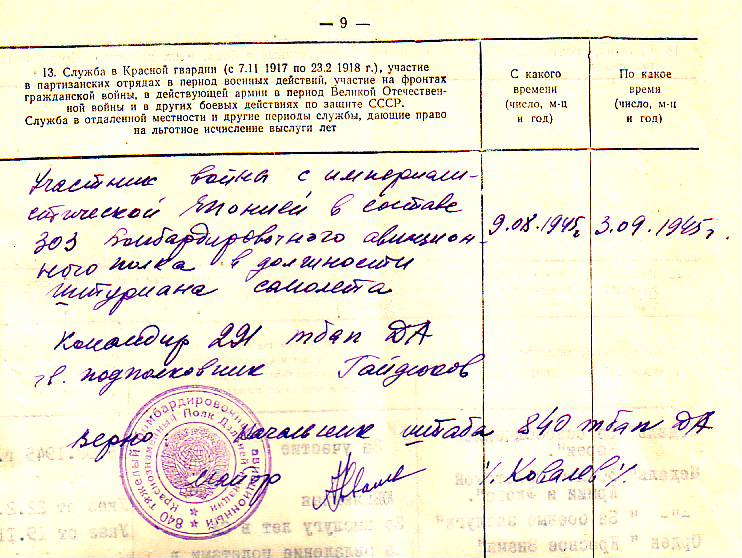 — 9 —
13. Служба в Красной гвардии (с 7.11 1917 по 23.2 1918 г.), участие
в партизанских отрядах в период военных действий, участие на фронтах
гражданской войны, в действующей армии в период Великой Отечествен-
ной войны и в других боевых действиях по защите СССР.
Служба в отдаленной местности и другие периоды службы, дающие право
на льготное исчисление выслуги лет
С какого
времени
(число, м-ц
и год)
По какое
время
(число, м-ц
и год)
Участник войны с империали-
стической Японией в составе
303 бомбардировочного авиацион-
ного полка в должности
штурмана самолета
9.08.1945г
3.09.1945г.
Командир 291 тбап ДА
гв. подполковник Гайдюков
Верно Начальник штаба 840 тбап ДА
майор /Ковалев/
840 тяжелый бомбардировочный авиационный
Краснознаменный Полк Дальней Авиации